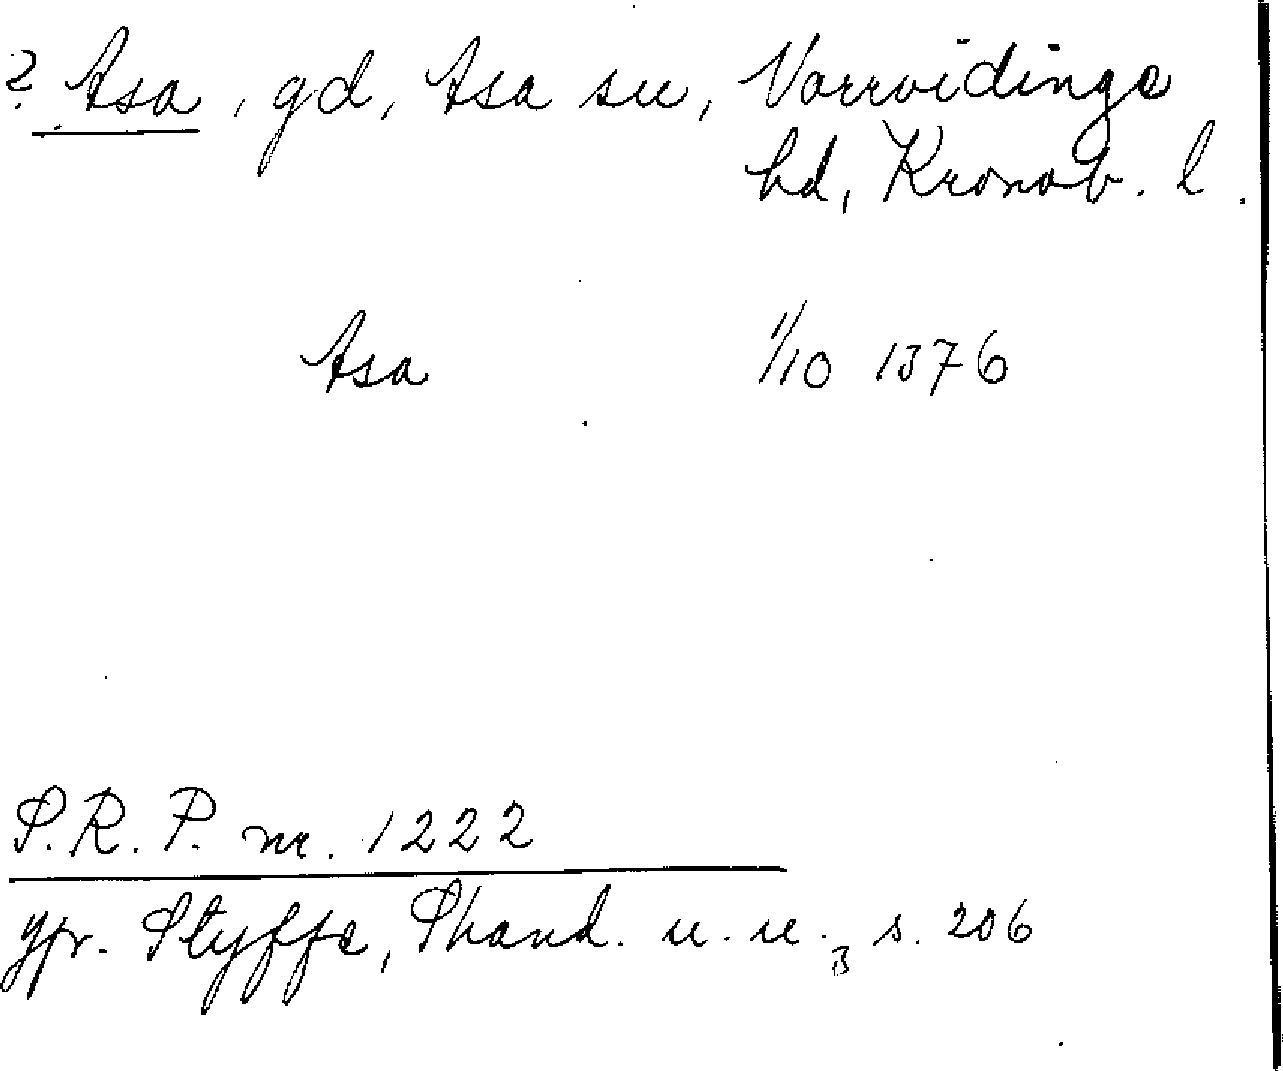 ? Asa, gd, Asa sn, Norrvidinge
hd, Kronob. l.
Asa 1/10 1376
S.R.P. nr. 1222
Jfr. Styffe, Skand. u. u. 3 s. 206